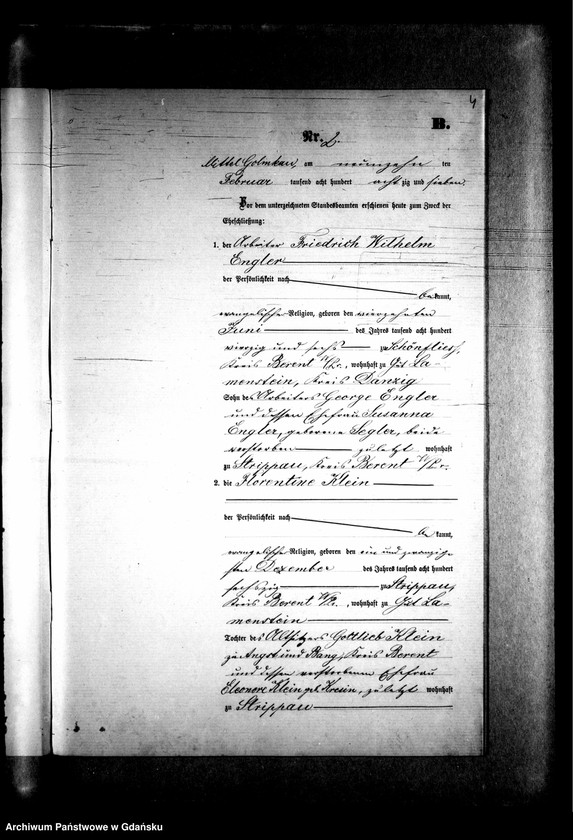 4
B.
Nr. 2.
Mittel Golmkau, am neunzehn ten
Februar tausend acht hundert acht zig und sieben.
Vor dem unterzeichneten Standesbeamten erschienen heute zum Zweck der
Eheschließung:
1. der Arbeiter Friedrich Wilhelm
Engler
der Persönlichkeit nach
bekannt,
evangelischer Religion, geboren den vierzehnten
Juni des Jahres tausend acht hundert
vierzig und sechs zu Schönfließ,
Kreis Berent W/Pr., wohnhaft zu Gut La-
menstein, Kreis Danzig
Sohn des Arbeiters George Engler
und dessen Ehefrau Susanna
Engler, geborene Segler, beide
verstorben zuletzt wohnhaft
zu Strippau, Kreis Berent W/Pr.
2. die Florentine Klein
der Persönlichkeit nach
be kannt,
evangelischer Religion, geboren den ein und zwanzig-
sten Dezember des Jahres tausend acht hundert
sechszig zu Strippau,
Kreis Berent W/Pr., wohnhaft zu Gut La-
menstein
Tochter des Altsitzers Gottlieb Klein
zu Angst und Bang, Kreis Berent
und dessen verstorbenen Ehefrau
Eleonore Klein geb. Kresin, zuletzt wohnhaft
zu Strippau
Archiwum Państwowe w Gdańsku